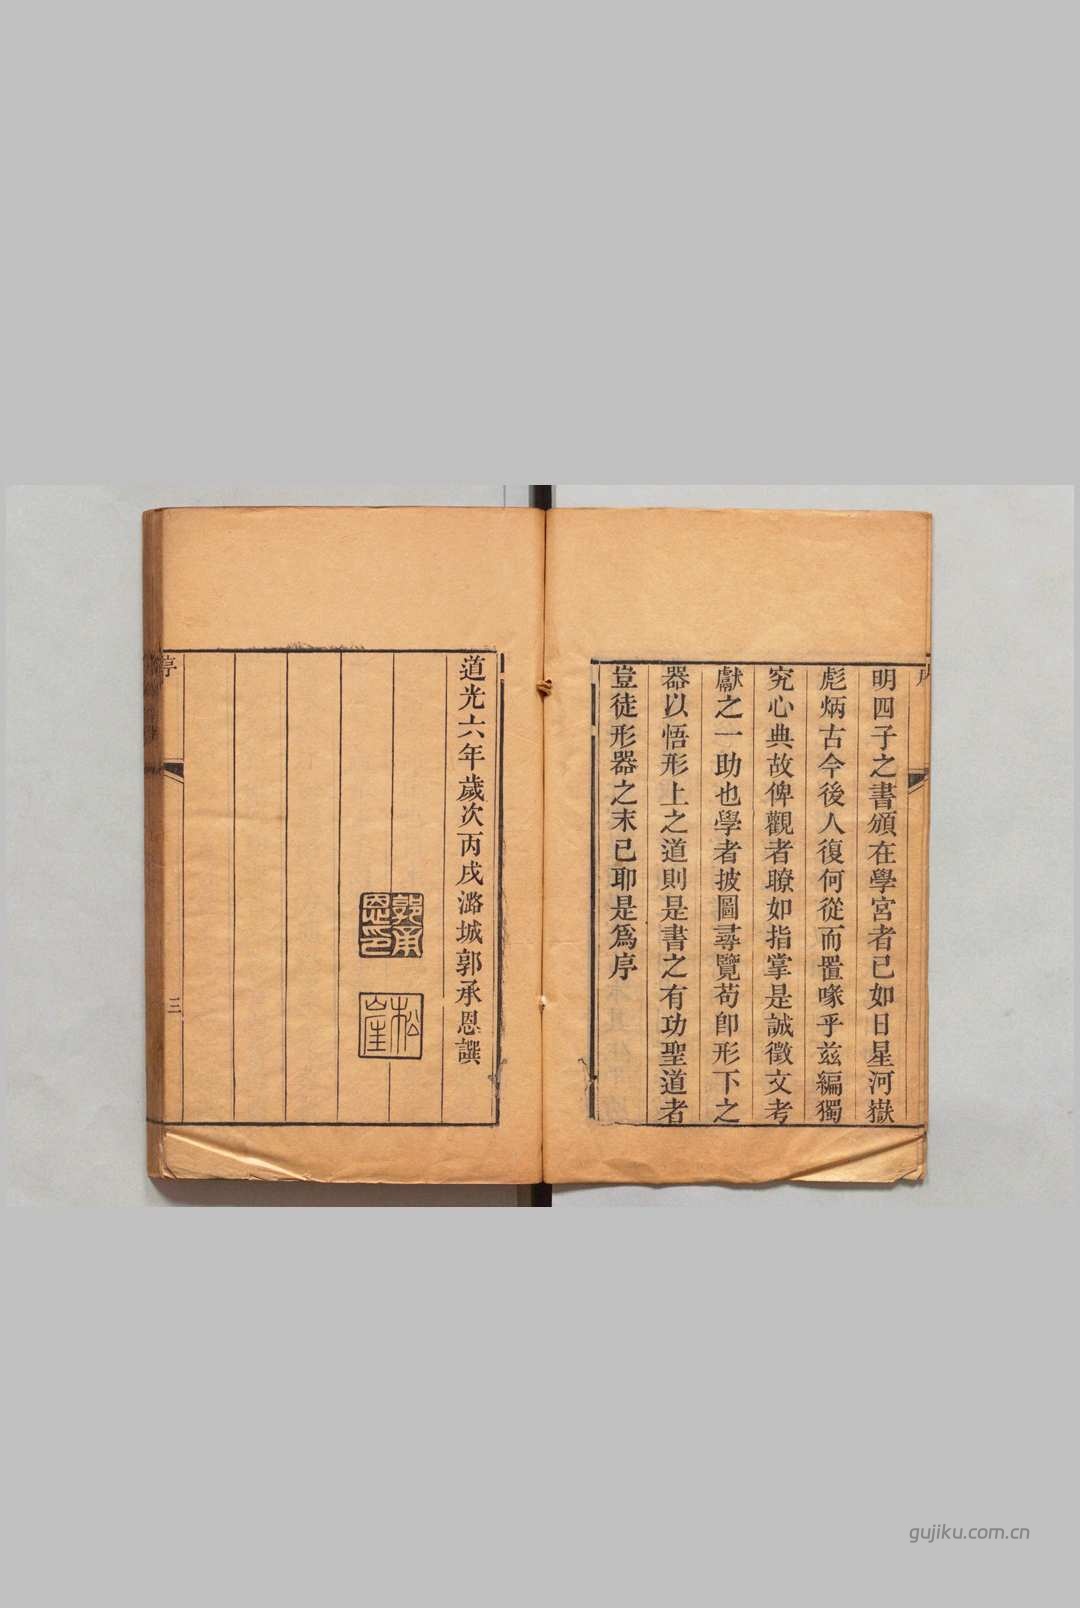 明四子之書頒在學宮者已如日星河嶽
彪炳古今後人復何從而置喙乎兹編獨
究心典故俾觀者瞭如指掌是誠徵文考
獻之一助也學者披圖尋覽苟卽形下之
器以悟形上之道則是書之有功聖道者
豈徒形器之末已耶是爲序
道光六年歲次丙戌潞城郭承恩譔
郭承恩印
松崖
序
三
gujiku.com.cn